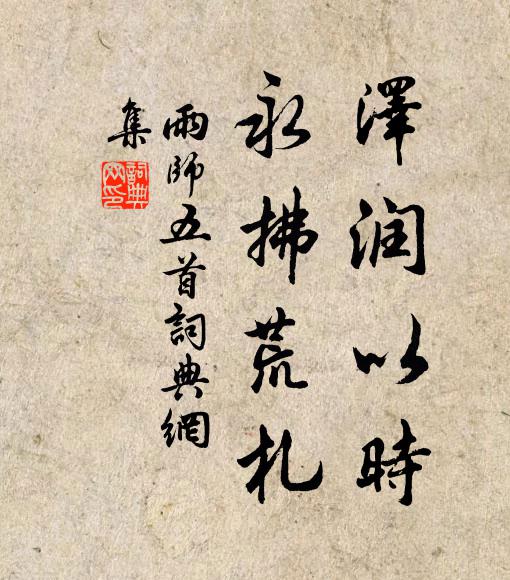 澤润以時
永拂荒札
雨師五首詞典網
集
詞典
网印